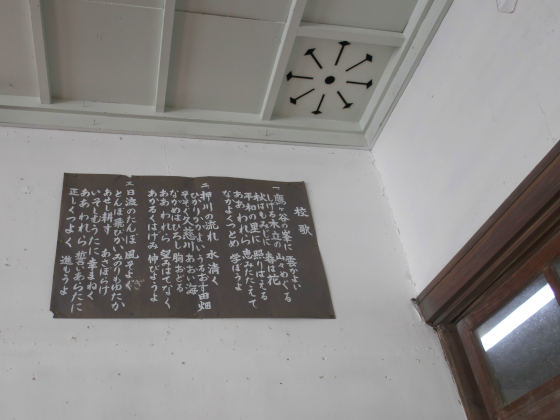 校歌
一 鷹ヶ谷の峯に 雲かよい
しげる木立の 年々めぐる
秋はもみじに 春は花
平和の里に 照りはえる
ああわれら 恵みたたえて
なかよくつとめ 学ぼうよ
二 押川の流れ 水清く
ひかりかよい うるおす田畑
早やそそぐ久慈川 あおい海
ながめはひろし 胸おどる
ああわれら 望みはてなく
あかるくはげみ 伸びそうよ
三 日波のたんぼ 風そよぎ
とんぼ飛びかい みのりもゆたか
あせし耕す あさぼらけ
いそしむうたに 幸まねく
ああわれら 誓いあらたに
正しくつよく 進もうよ